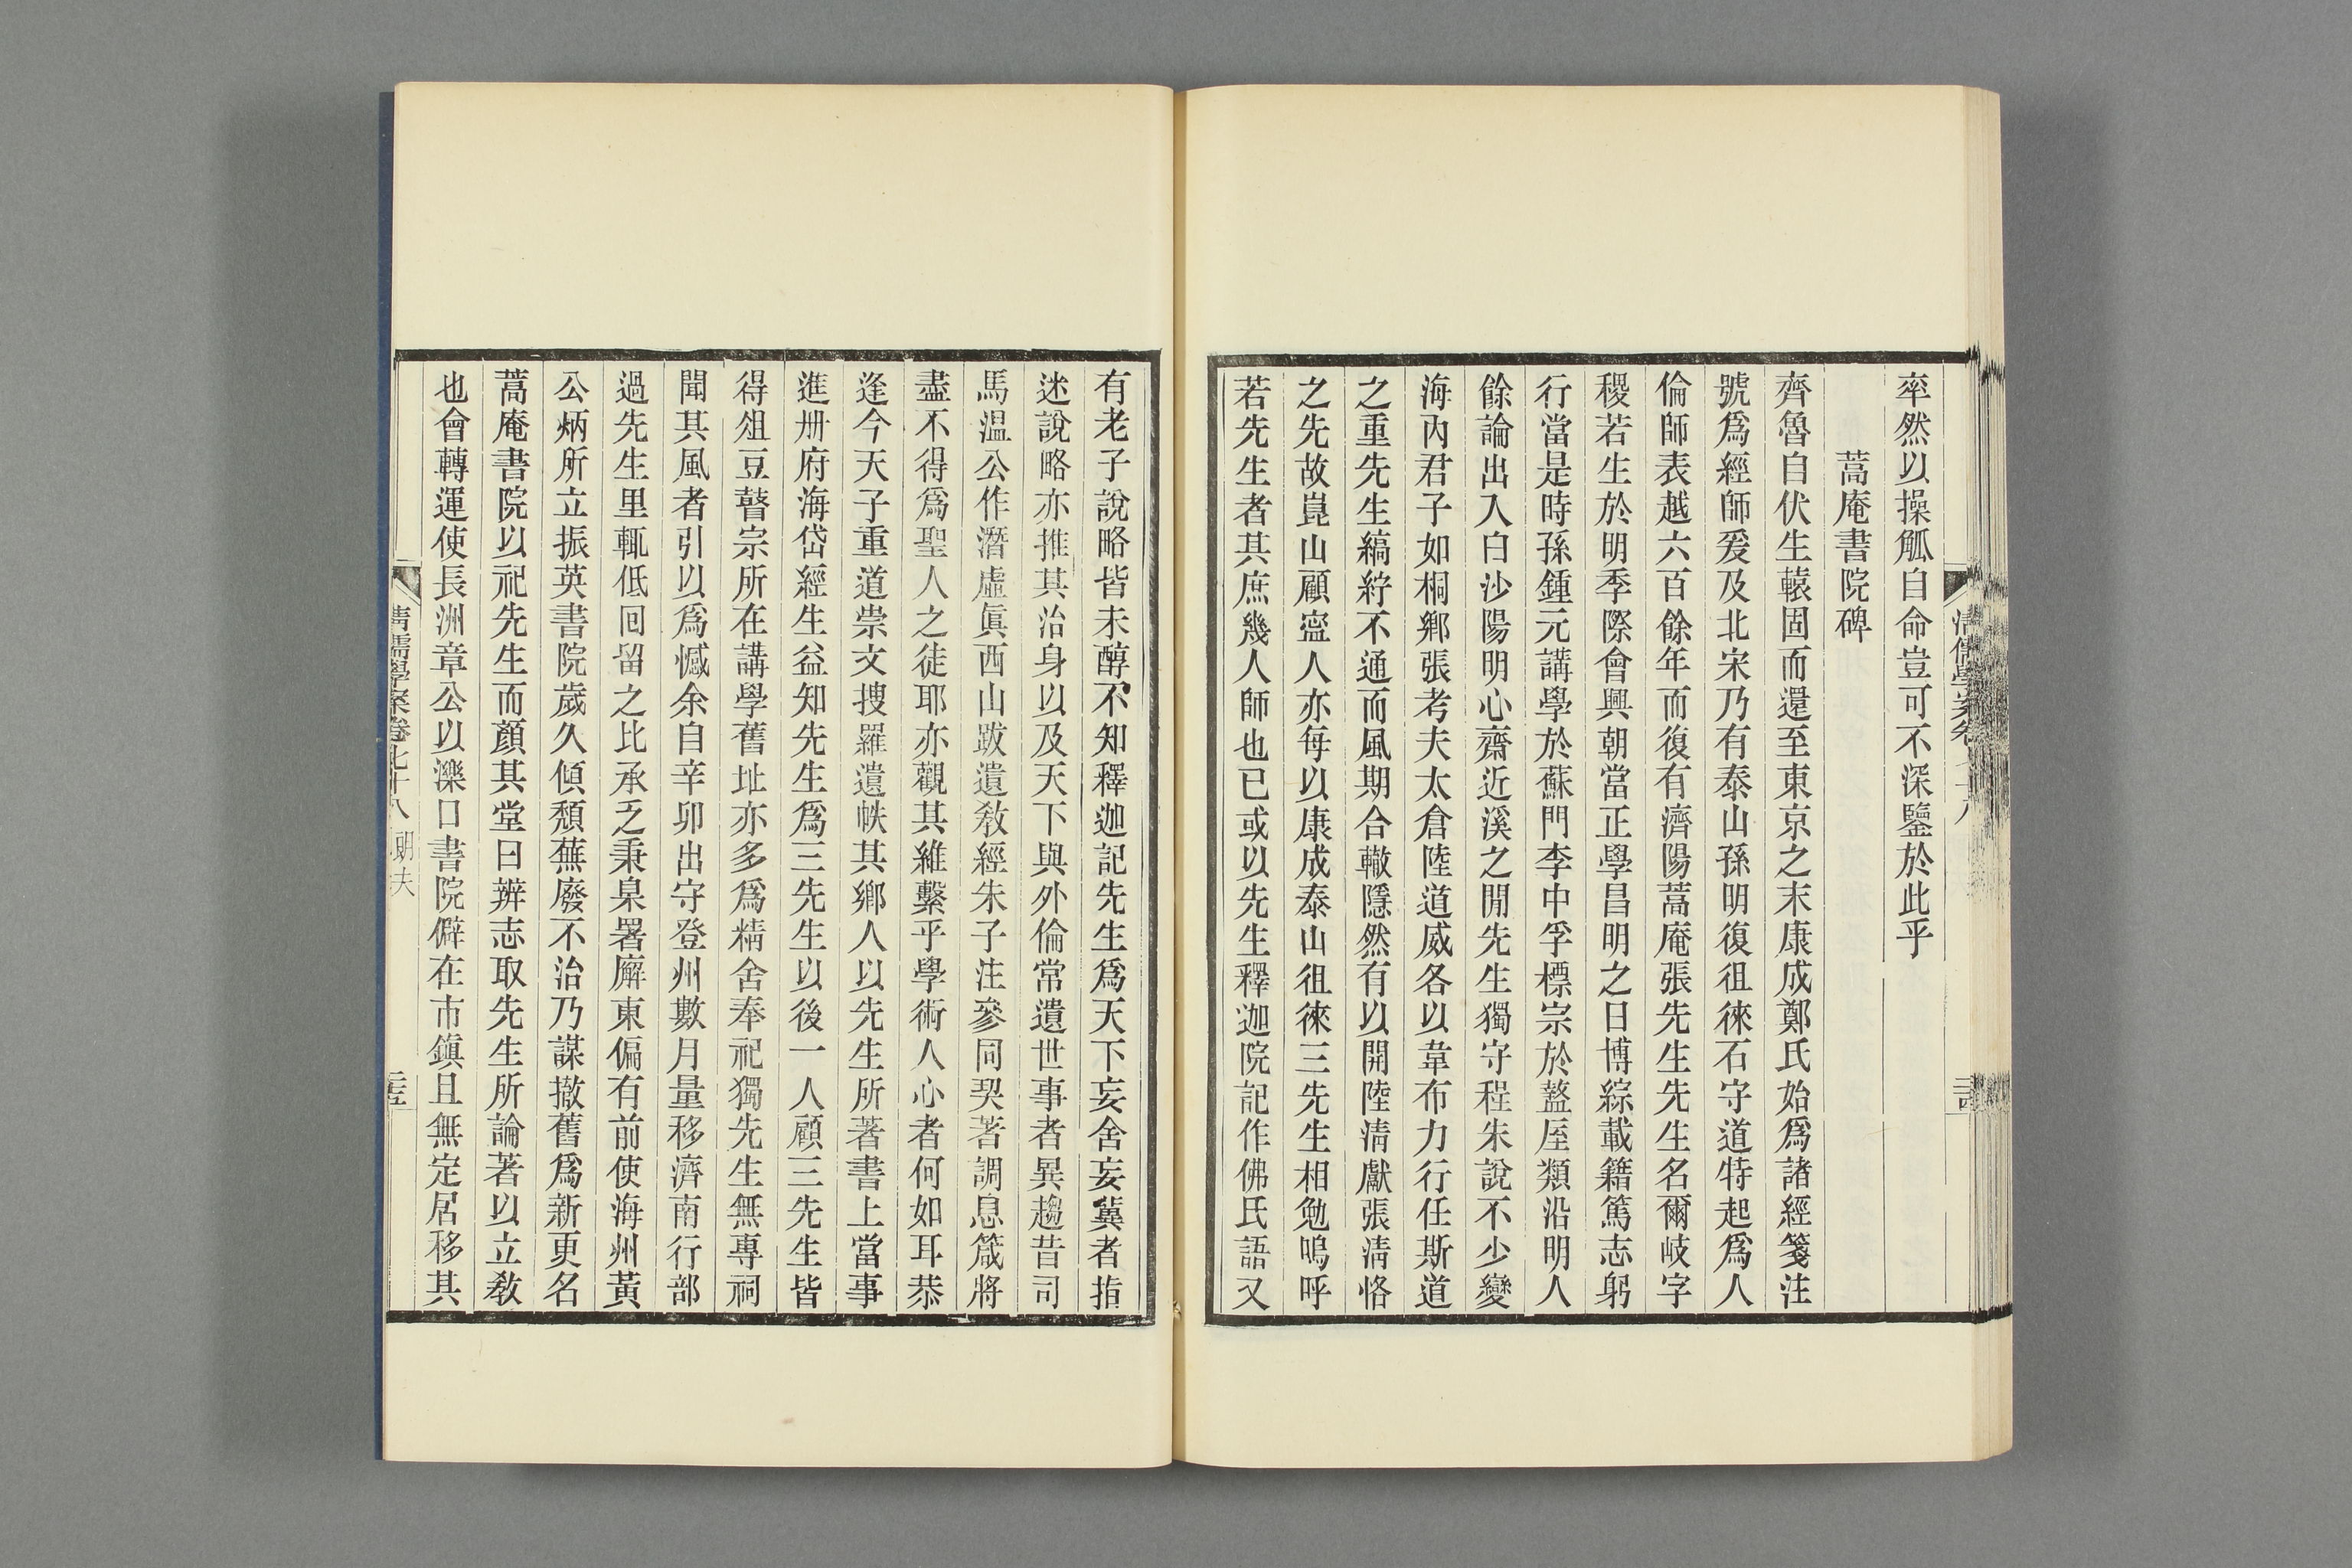 率然以操觚自命豈可不深鑒於此乎
蒿庵書院碑
齊魯自伏生轅固而還至東京之末康成鄭氏始爲諸經箋注
號爲經師爰及北宋乃有泰山孫明復徂徠石守道特起爲人
倫師表越六百餘年而復有濟陽蒿庵張先生先生名爾岐字
稷若生於明季際會興朝當正學昌明之日博綜載籍篤志躬
行當是時孫鍾元講學於蘇門李中孚標宗於盩厔類沿明人
餘論出入白沙陽明心齋近溪之閒先生獨守程朱說不少變
海內君子如桐鄉張考夫太倉陸道威各以韋布力行任斯道
之重先生縞紵不通而風期合轍隱然有以開陸清獻張清恪
之先故崑山顧寍人亦每以康成泰山徂徠三先生相勉嗚呼
若先生者其庶幾人師也已或以先生釋迦院記作佛氏語又
有老子說略皆未醇不知釋迦記先生爲天下妄舍妄冀者指
迷說略亦推其治身以及天下與外倫常遺世事者異趨昔司
馬溫公作潛虛眞西山跋遺敎經朱子注參同契著調息箴將
盡不得爲聖人之徒耶亦觀其維繫乎學術人心者何如耳恭
逢今天子重道崇文搜羅遺帙其鄉人以先生所著書上當事
進册府海岱經生益知先生爲三先生以後一人顧三先生皆
得俎豆瞽宗所在講學舊址亦多爲精舍奉祀獨先生無專祠
聞其風者引以爲憾余自辛卯出守登州數月量移濟南行部
過先生里輒低回留之比承乏秉臬署廨東偏有前使海州黃
公炳所立振英書院歲久傾頹蕪廢不治乃謀撤舊爲新更名
蒿庵書院以祀先生而顏其堂曰辨志取先生所論著以立敎
也會轉運使長洲章公以濼口書院僻在市鎭且無定居移其
清儒學案卷七十八 朗夫